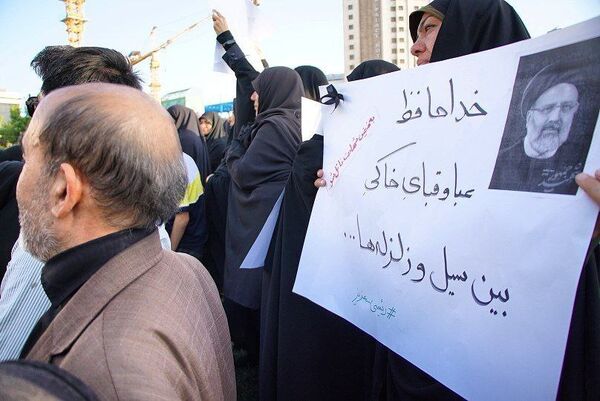 خداحافظ
عبا و قبایِ خاکیِ
بین سیل و زلزله‌ها...
#رئیسی_عزیز